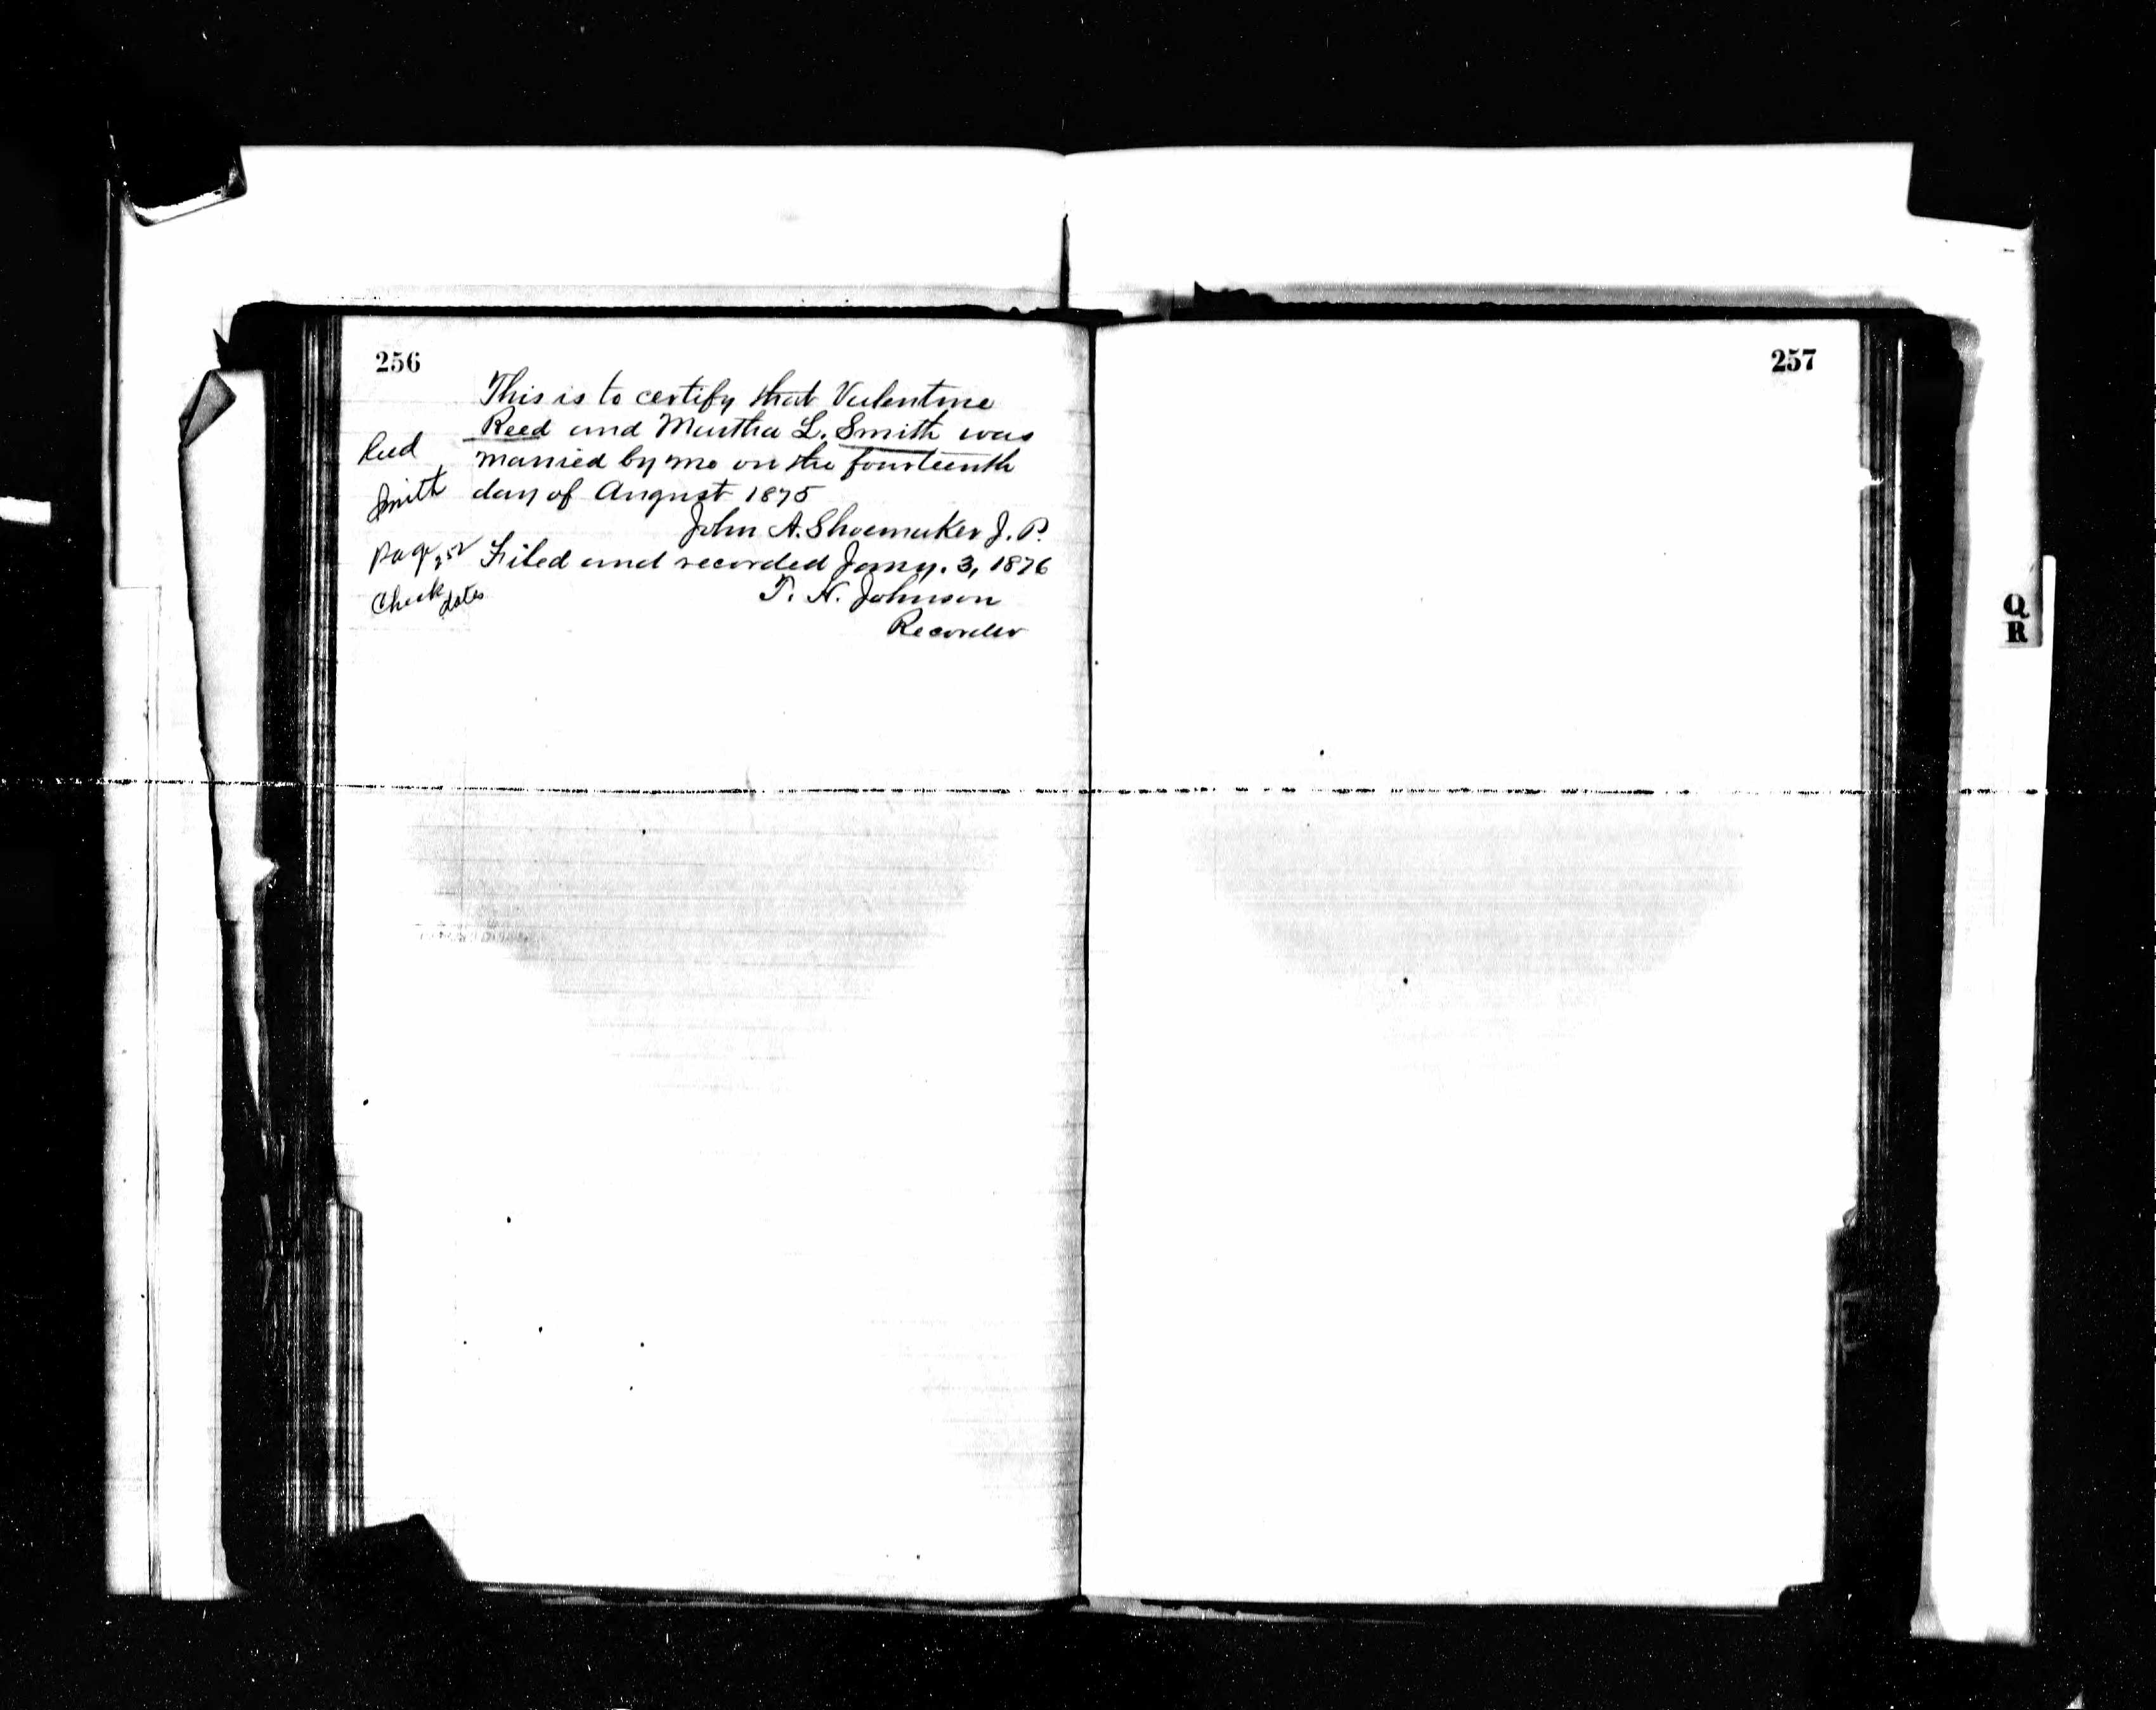 256
This is to certify that Valentine
Reed and Martha L. Smith was
married by me on the fourteenth
day of August 1875
John A. Shoemaker J. P.
Filed and recorded Jany. 3, 1876
T. H. Johnson
Recorder
Reed
Smith
page 252
Check dates
257
Q
R